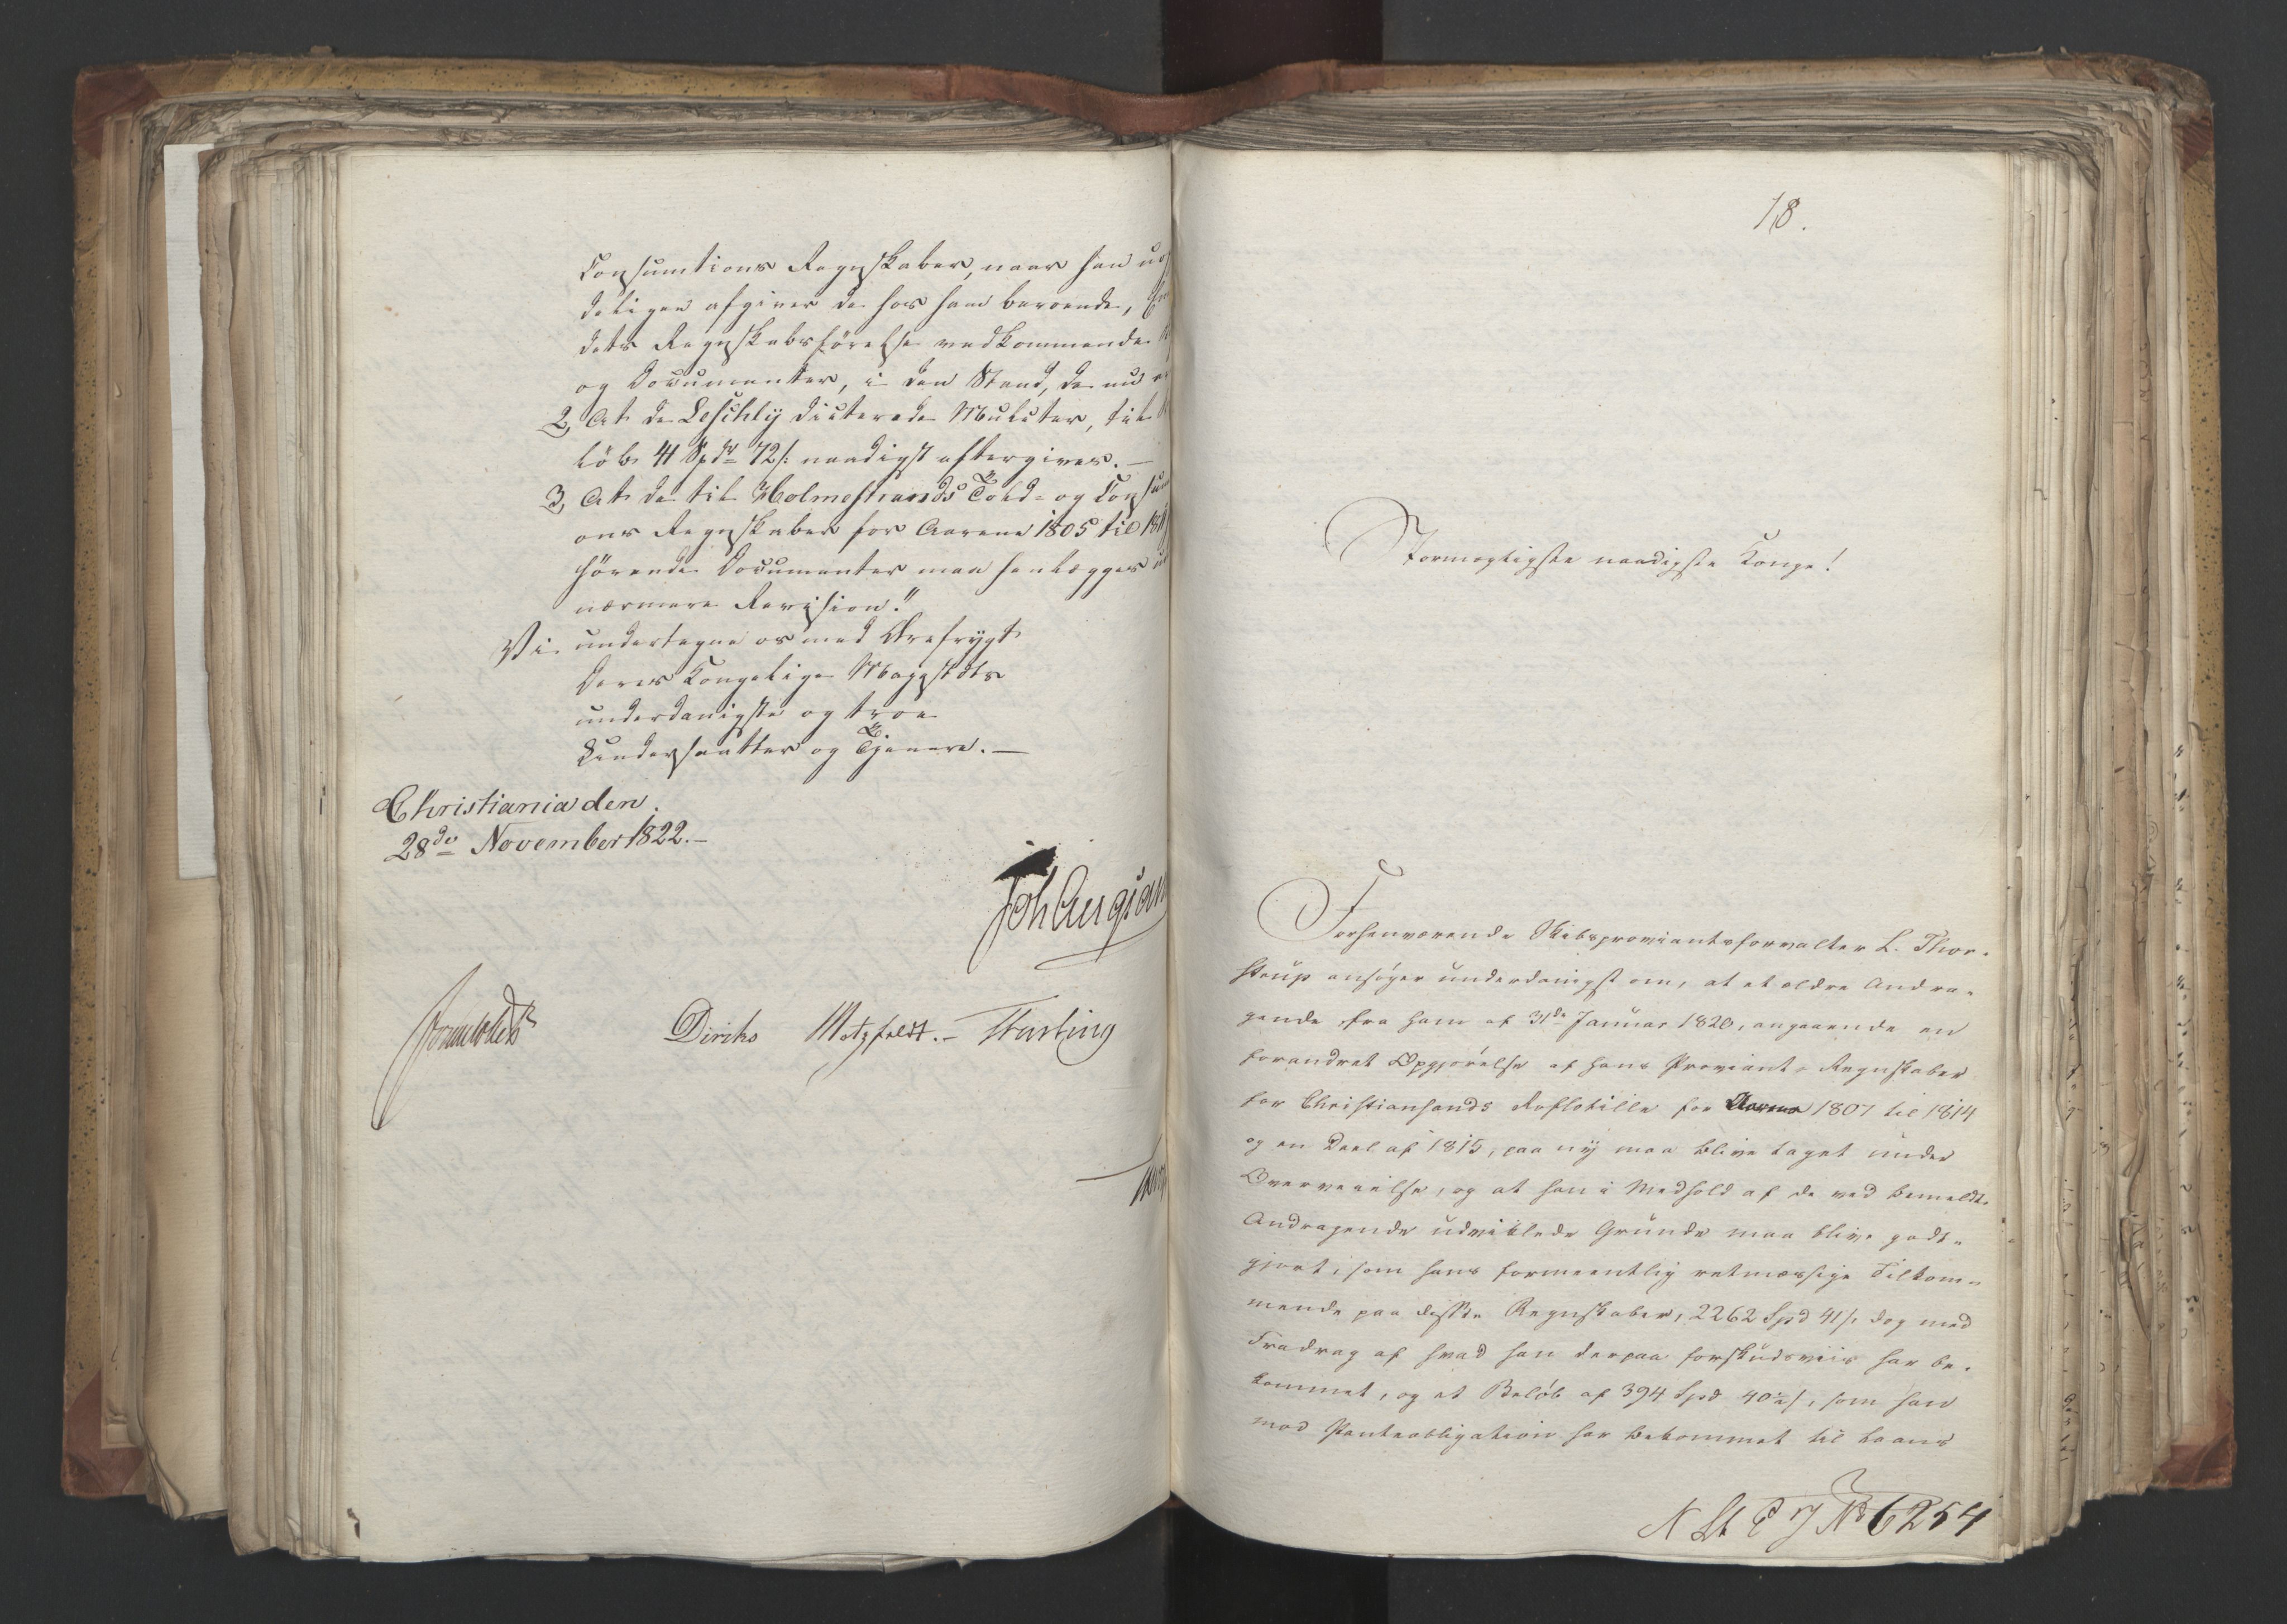 Consumtions Regnskaber, naar han
deligen afgiver de hos ham beroende,
dets Regnskabsførelse vedkommende
og Documenter, i den Stand, de nu
2, At de Leschly dicterede Mulcter, til
løb 41 Spdr 72/: naadigst eftergives. —
3, At de til Holmestrands Told- og Consum
ons Regnskaber for Aarene 1805 til 181
hørende Documenter maa henlægges
nærmere Revision."
Vi undertegne os med Ærefrygt
Deres Kongelige Majestæts
underdanigste og troe
Undersaatter og Tjenere. —
Christiania den
28de November 1822. —
Diriks Motzfeldt. —
18.
Stormægtigste naadigste Konge!
Forhenværende Skibsproviantsforvalter L. Thor-
strup ansøger underdanigst om, at et ældre Andra-
gende fra ham af 31de Januar 1820, angaaende en
forandret Opgjørelse af hans Proviant-Regnskaber
for Christiansands Roflotille for Aarene 1807 til 1814
og en Deel af 1815, paa ny maa blive taget under
Overveielse, og at han i Medhold af de ved bemeldte
Andragende udviklede Grunde maa blive godt-
gjort, som hans formeentlig retmæssige Tilkom-
mende paa disse Regnskaber, 2262 Spd 41/: dog med
Fradrag af hvad han derpaa forskudsviis har be-
kommet, og et Beløb af 394 Spd 40½/, som han
mod Panteobligation har bekommet til Laans
N St C J No 6254